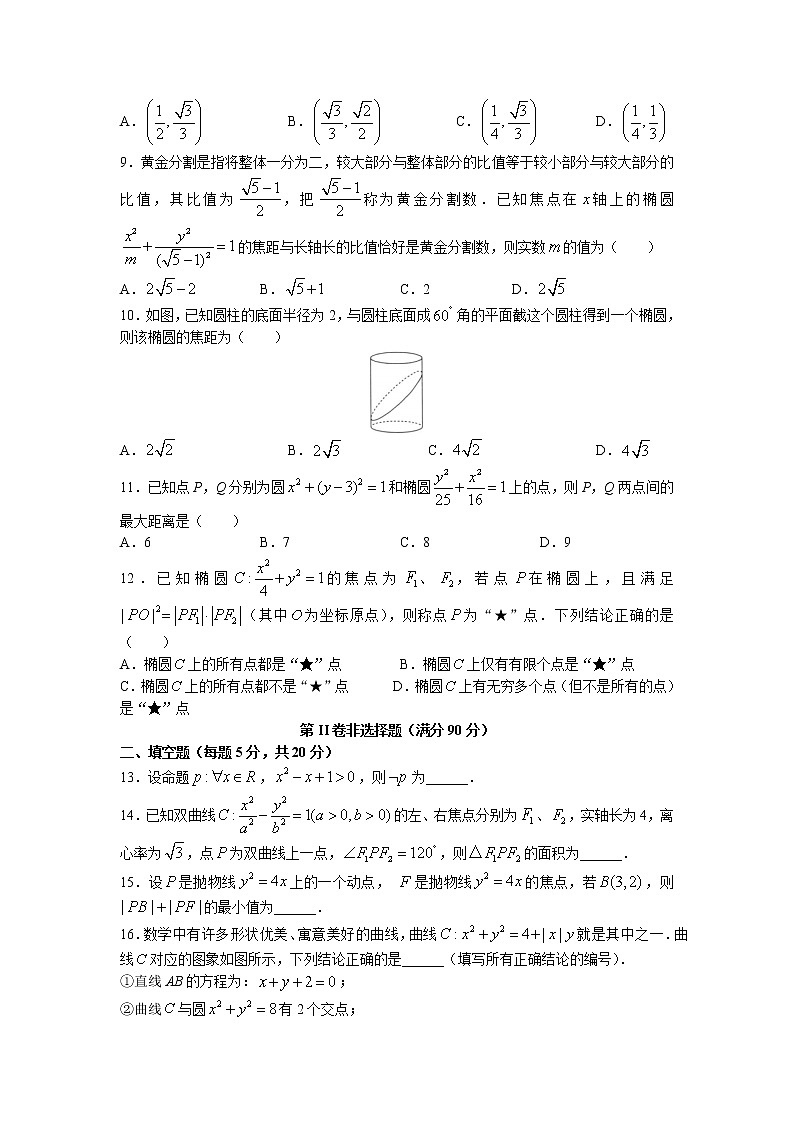 A. (1/2, √3/3) B. (√3/3, √2/2) C. (1/4, √3/3) D. (1/4, 1/3)
9.黄金分割是指将整体一分为二,较大部分与整体部分的比值等于较小部分与较大部分的
比值,其比值为 (√5−1)/2 ,把 (√5−1)/2 称为黄金分割数.已知焦点在x轴上的椭圆
x²/m + y²/(√5−1)² = 1的焦距与长轴长的比值恰好是黄金分割数,则实数m的值为( )
A.2√5−2 B.√5+1 C.2 D.2√5
10.如图,已知圆柱的底面半径为2,与圆柱底面成60°角的平面截这个圆柱得到一个椭圆,
则该椭圆的焦距为( )
A.2√2 B.2√3 C.4√2 D.4√3
11.已知点P,Q分别为圆x²+(y−3)²=1和椭圆y²/25 + x²/16 = 1上的点,则P,Q两点间的
最大距离是( )
A.6 B.7 C.8 D.9
12.已知椭圆C:x²/4 + y² = 1的焦点为F₁、F₂,若点P在椭圆上,且满足
|PO|²=|PF₁|·|PF₂|(其中O为坐标原点),则称点P为“★”点.下列结论正确的是
( )
A.椭圆C上的所有点都是“★”点 B.椭圆C上仅有有限个点是“★”点
C.椭圆C上的所有点都不是“★”点 D.椭圆C上有无穷多个点(但不是所有的点)
是“★”点
第II卷非选择题(满分90分)
二、填空题(每题5分,共20分)
13.设命题p:∀x∈R,x²−x+1>0,则¬p为______.
14.已知双曲线C:x²/a² − y²/b² = 1(a>0,b>0)的左、右焦点分别为F₁、F₂,实轴长为4,离
心率为√3,点P为双曲线上一点,∠F₁PF₂=120°,则△F₁PF₂的面积为______.
15.设P是抛物线y²=4x上的一个动点, F是抛物线y²=4x的焦点,若B(3,2),则
|PB|+|PF|的最小值为______.
16.数学中有许多形状优美、寓意美好的曲线,曲线C:x²+y²=4+|x|y就是其中之一.曲
线C对应的图象如图所示,下列结论正确的是______(填写所有正确结论的编号).
①直线AB的方程为:x+y+2=0;
②曲线C与圆x²+y²=8有2个交点;